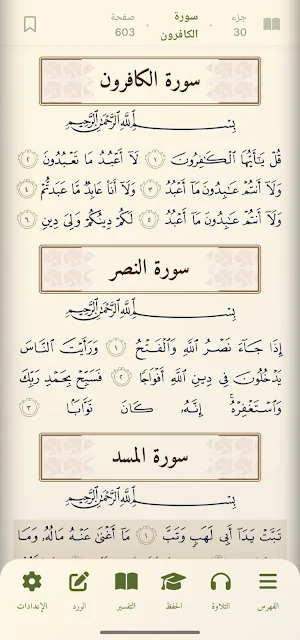 جزء
30
سورة
الكافرون
صفحة
603
سورة الكافرون
بِسْمِ ٱللَّهِ ٱلرَّحْمَٰنِ ٱلرَّحِيمِ
قُلْ يَٰٓأَيُّهَا ٱلْكَٰفِرُونَ ١ لَآ أَعْبُدُ مَا تَعْبُدُونَ ٢
وَلَآ أَنتُمْ عَٰبِدُونَ مَآ أَعْبُدُ ٣ وَلَآ أَنَا۠ عَابِدٌ مَّا عَبَدتُّمْ ٤
وَلَآ أَنتُمْ عَٰبِدُونَ مَآ أَعْبُدُ ٥ لَكُمْ دِينُكُمْ وَلِىَ دِينِ ٦
سورة النصر
بِسْمِ ٱللَّهِ ٱلرَّحْمَٰنِ ٱلرَّحِيمِ
إِذَا جَآءَ نَصْرُ ٱللَّهِ وَٱلْفَتْحُ ١ وَرَأَيْتَ ٱلنَّاسَ
يَدْخُلُونَ فِى دِينِ ٱللَّهِ أَفْوَاجًا ٢ فَسَبِّحْ بِحَمْدِ رَبِّكَ
وَٱسْتَغْفِرْهُ ۚ إِنَّهُۥ كَانَ تَوَّابًۢا ٣
سورة المسد
بِسْمِ ٱللَّهِ ٱلرَّحْمَٰنِ ٱلرَّحِيمِ
تَبَّتْ يَدَآ أَبِى لَهَبٍ وَتَبَّ ١ مَآ أَغْنَىٰ عَنْهُ مَالُهُۥ وَمَا
الفهرس
التلاوة
الحفظ
التفسير
الورد
الإعدادات